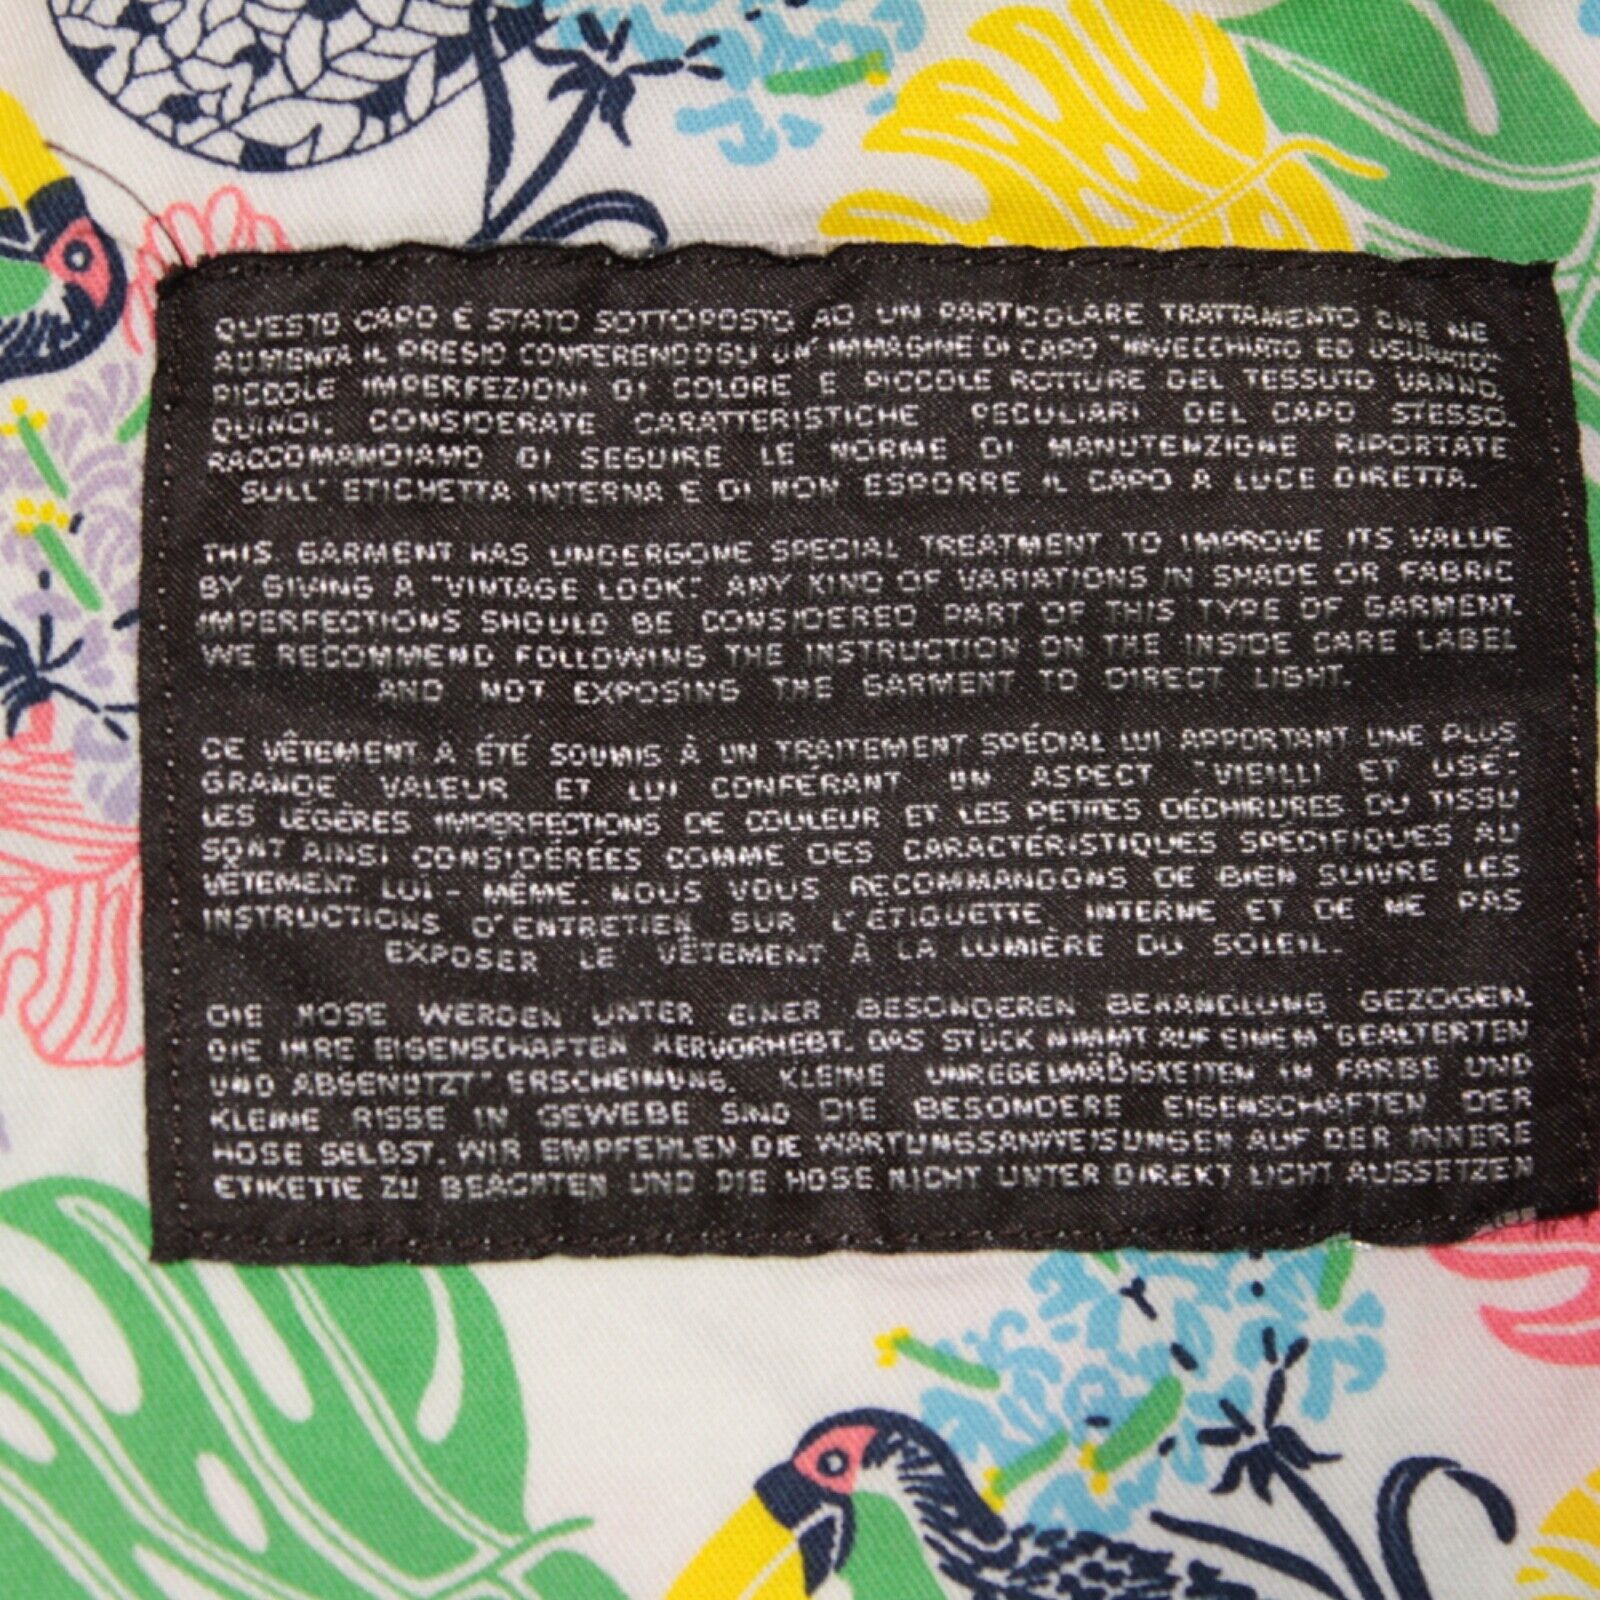 QUESTO CAPO È STATO SOTTOPOSTO AD UN PARTICOLARE TRATTAMENTO CHE NE
AUMENTA IL PREGIO CONFERENDOGLI UN' IMMAGINE DI CAPO "INVECCHIATO ED USURATO".
PICCOLE IMPERFEZIONI DI COLORE E PICCOLE ROTTURE DEL TESSUTO VANNO,
QUINDI, CONSIDERATE CARATTERISTICHE PECULIARI DEL CAPO STESSO.
RACCOMANDIAMO DI SEGUIRE LE NORME DI MANUTENZIONE RIPORTATE
SULL' ETICHETTA INTERNA E DI NON ESPORRE IL CAPO A LUCE DIRETTA.
THIS GARMENT HAS UNDERGONE SPECIAL TREATMENT TO IMPROVE ITS VALUE
BY GIVING A "VINTAGE LOOK". ANY KIND OF VARIATIONS IN SHADE OR FABRIC
IMPERFECTIONS SHOULD BE CONSIDERED PART OF THIS TYPE OF GARMENT.
WE RECOMMEND FOLLOWING THE INSTRUCTION ON THE INSIDE CARE LABEL
AND NOT EXPOSING THE GARMENT TO DIRECT LIGHT.
CE VÊTEMENT A ÉTÉ SOUMIS À UN TRAITEMENT SPÉCIAL LUI APPORTANT UNE PLUS
GRANDE VALEUR ET LUI CONFÉRANT UN ASPECT "VIEILLI ET USÉ".
LES LÉGÈRES IMPERFECTIONS DE COULEUR ET LES PETITES DÉCHIRURES DU TISSU
SONT AINSI CONSIDÉRÉES COMME DES CARACTÉRISTIQUES SPÉCIFIQUES AU
VÊTEMENT LUI - MÊME. NOUS VOUS RECOMMANDONS DE BIEN SUIVRE LES
INSTRUCTIONS D'ENTRETIEN SUR L'ÉTIQUETTE INTERNE ET DE NE PAS
EXPOSER LE VÊTEMENT À LA LUMIÈRE DU SOLEIL.
DIE HOSE WERDEN UNTER EINER BESONDEREN BEHANDLUNG GEZOGEN,
DIE IHRE EIGENSCHAFTEN HERVORHEBT. DAS STÜCK NIMMT AUF EINEM "GEALTERTEN
UND ABGENÜTZT" ERSCHEINUNG. KLEINE UNREGELMÄßIGKEITEN IN FARBE UND
KLEINE RISSE IN GEWEBE SIND DIE BESONDERE EIGENSCHAFTEN DER
HOSE SELBST. WIR EMPFEHLEN DIE WARTUNGSANWEISUNGEN AUF DER INNERE
ETIKETTE ZU BEACHTEN UND DIE HOSE NICHT UNTER DIREKT LICHT AUSSETZEN